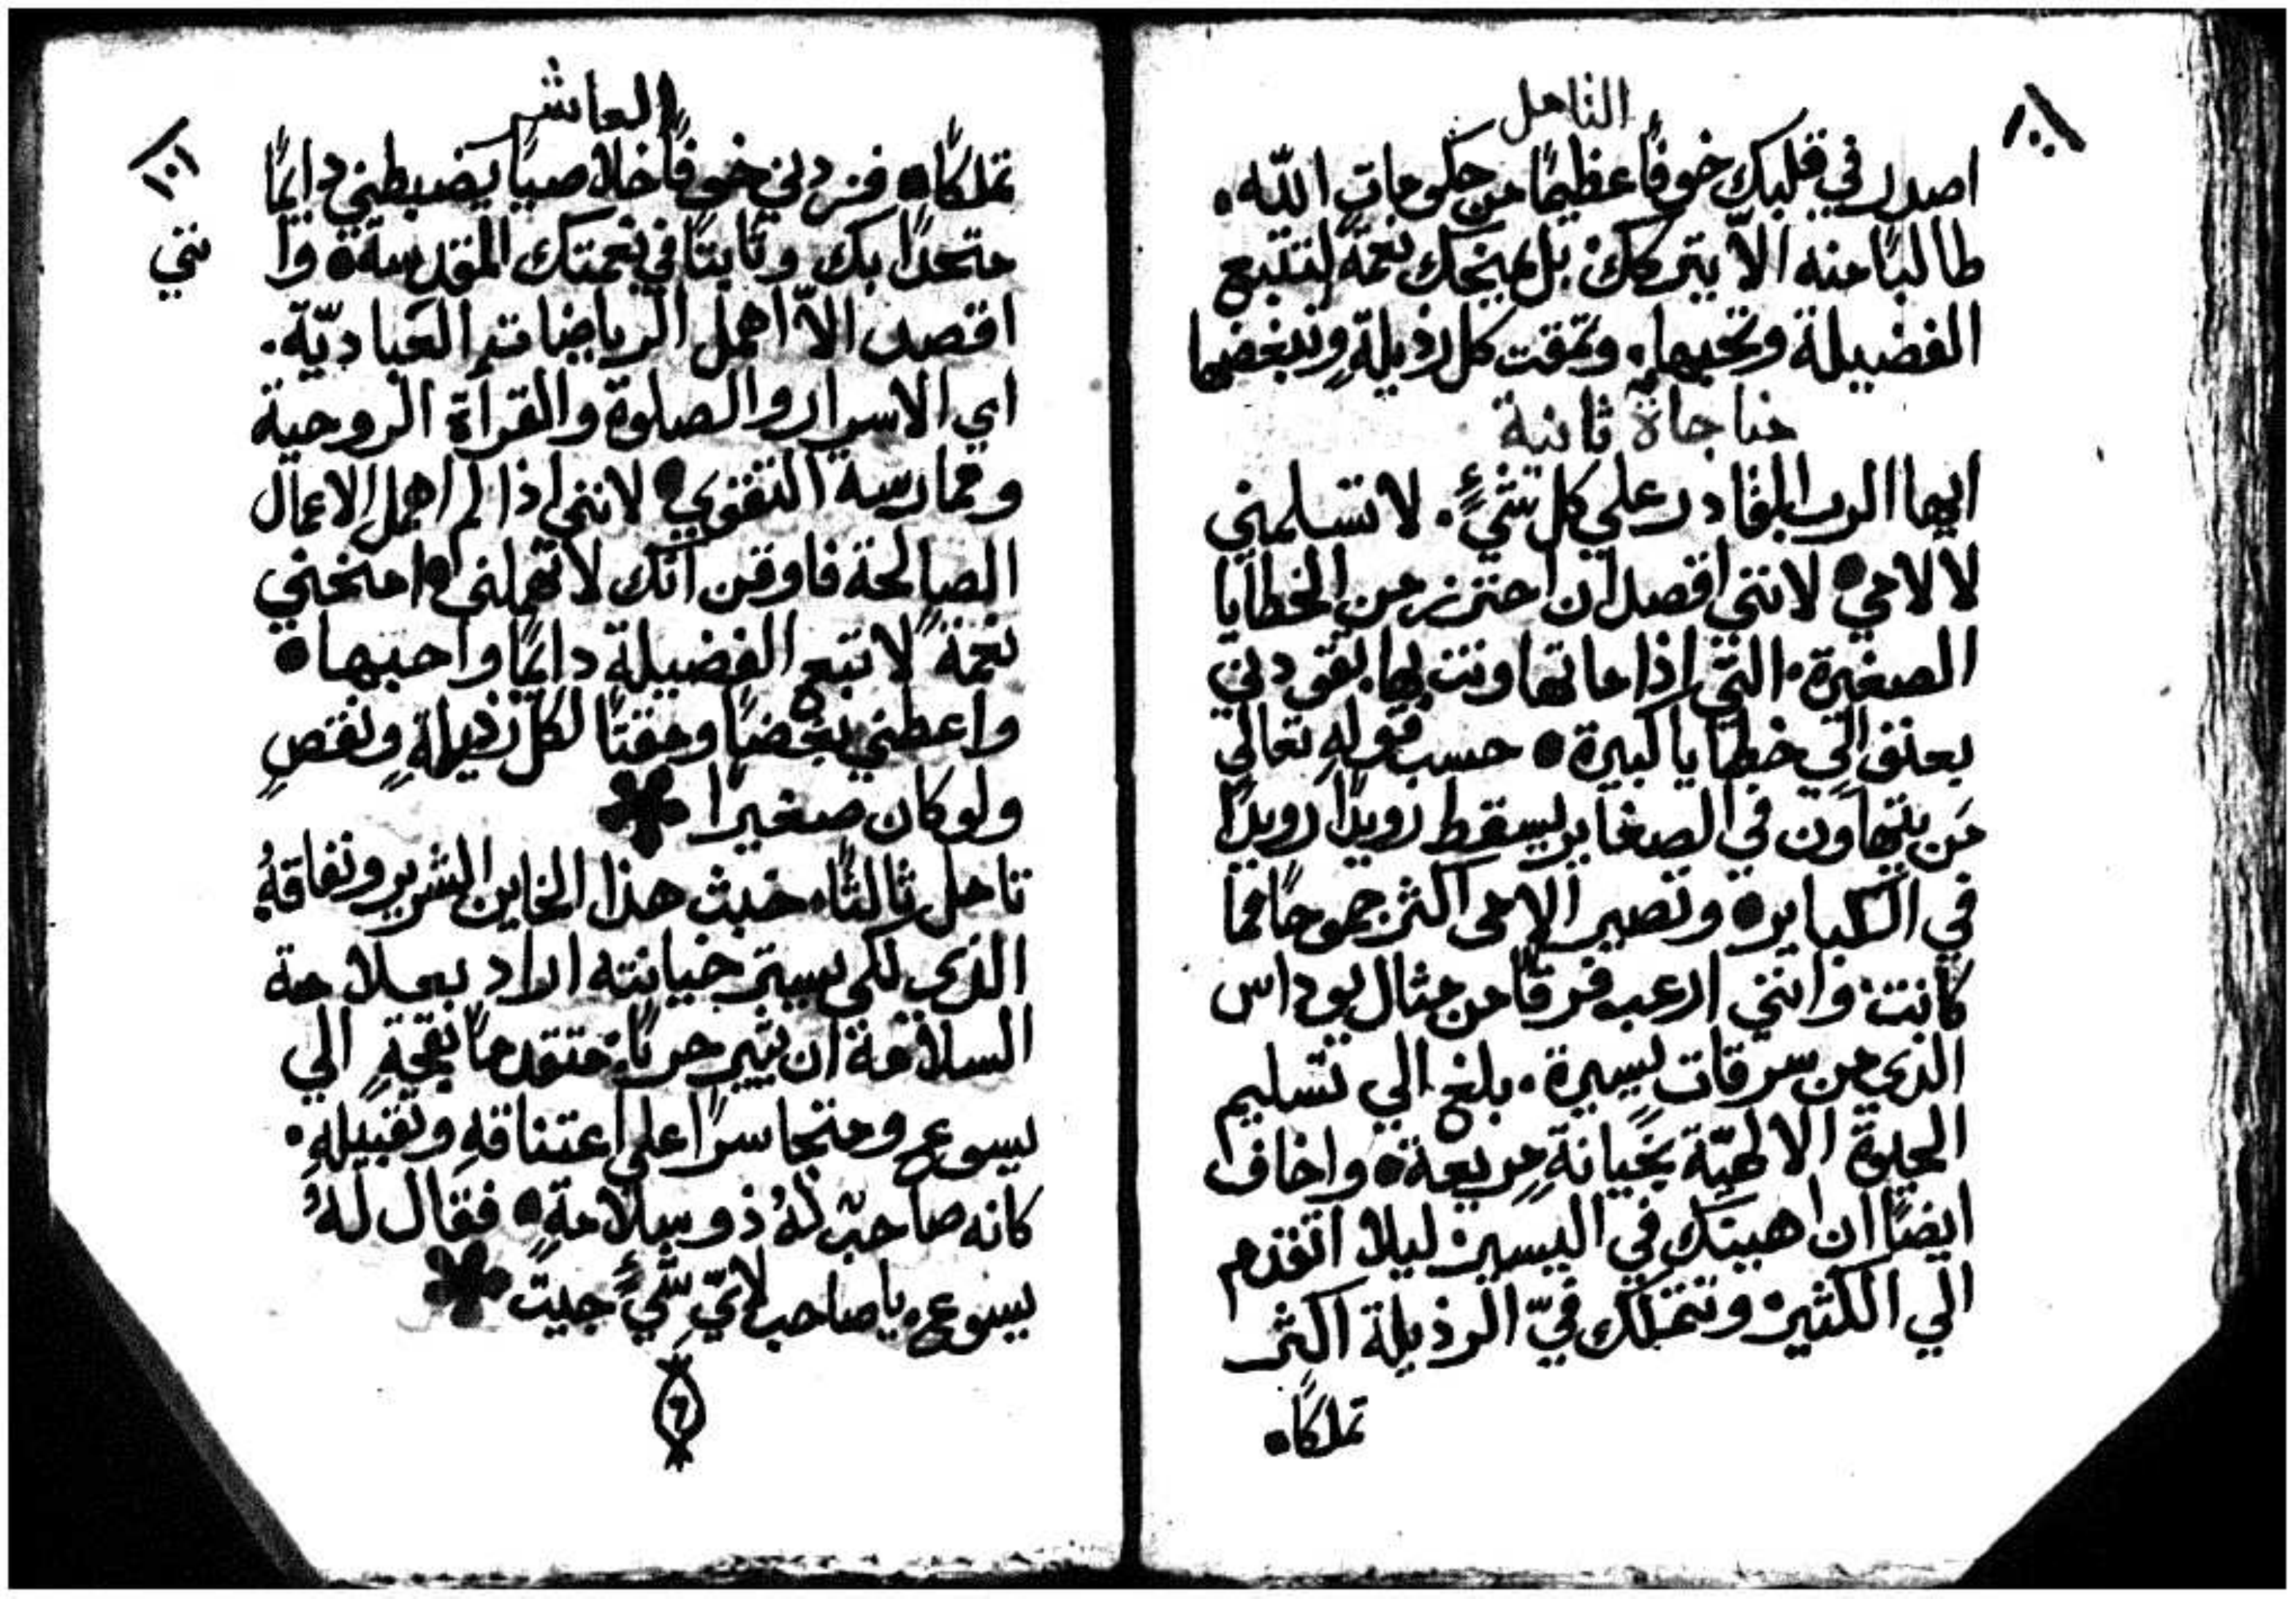 التامل
١٠١
اصدر في قلبك خوفًا عظيمًا من حكومات اللّه.
طالبًا منه الّا يتركك. بل يمنحك نعمةً لتتبع
الفضيلة وتحبها. وتمقت كل رذيلةٍ وتبغضها
مناجاة ثانية
ايها الرب القادر علي كل شيءٍ. لا تسلمني
لآلامي. لانني اقصد ان احترز من الخطايا
الصغيرة. التي اذا ما تهاونت بها. تقودني
بعنفٍ الي خطايا كبيرة. حسب قولهِ تعالي
مَن يتهاون في الصغاير يسقط رويدًا رويدًا
في الكباير. وتصير الامي اكثر جموحًا مما
كانت. وانني ارعب فرقًا من مثال يوداس
الذي من سرقات يسيرة. بلغ الي تسليم
الحيوة الالهيّة بخيانةٍ مريعة. واخاف
ايضًا ان اهينك في اليسير. ليلا اتقدم
الي الكثير. وتتملك فيّ الرذيلة اكثر
تملكًا.
العاشر
١٠١
تملكًا. فزدني خوفًا خلاصيًا يضبطني دايمًا
متحدًا بك وثابتًا في نعمتك المقدسة. وا نني
اقصد الّا اهمل الرياضات العباديّة.
اي الاسرار والصلوة والقرآة الروحية
وممارسة التقوي. لانني اذا لم اهمل الاعمال
الصالحة فاوقن انك لا تهملني. امنحني
نعمةً لاتبع الفضيلة دايمًا واحبها.
واعطني بغضًا ومقتًا لكل رذيلةٍ ونقصٍ
ولو كان صغيرًا
تامل ثالثًا. خبث هذا الخاين الشرير ونفاقهُ
الذي لكي يستر خيانته اراد بعلامة
السلامة ان يثير حربًا. متقدمًا بقحةٍ الي
يسوع ومتجاسرًا علي اعتناقهِ وتقبيلهِ.
كانه صاحبٌ لهُ ذو سلامةٍ. فقال لهُ
يسوع. يا صاحب لايّ شيءٍ جيت
٦